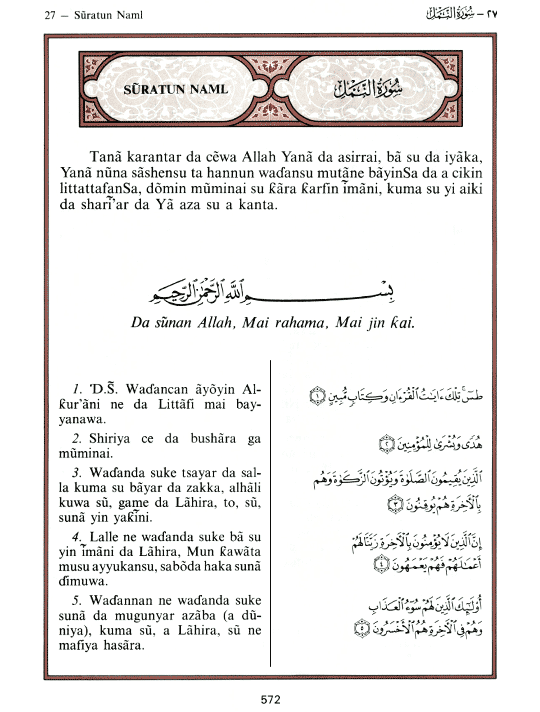 27 — Sūratun Naml
٢٧ — سُورَةُ النَّمْلِ
SŪRATUN NAML
سُورَةُ النَّمْلِ
Tanã karantar da cẽwa Allah Yanã da asirrai, bã su da iyãka,
Yanã nũna sãshensu ta hannun waɗansu mutãne bãyinSa da a cikin
littattafanSa, dõmin mũminai su ƙãra ƙarfin ĩmãni, kuma su yi aiki
da sharĩ'ar da Yã aza su a kanta.
بِسْمِ اللَّهِ الرَّحْمَٰنِ الرَّحِيمِ
Da sũnan Allah, Mai rahama, Mai jin ƙai.
1. 'D.S̃. Waɗancan ãyõyin Al-
ƙur'ãni ne da Littãfi mai bay-
yanawa.
2. Shiriya ce da bushãra ga
mũminai.
3. Waɗanda suke tsayar da sal-
la kuma su bãyar da zakka, alhãli
kuwa sũ, game da Lãhira, to, sũ,
sunã yin yaƙĩni.
4. Lalle ne waɗanda suke bã su
yin ĩmãni da Lãhira, Mun ƙawãta
musu ayyukansu, sabõda haka sunã
ɗimuwa.
5. Waɗannan ne waɗanda suke
sunã da mugunyar azãba (a dũ-
niya), kuma sũ, a Lãhira, sũ ne
mafiya hasãra.
طسٓ ۚ تِلْكَ ءَايَٰتُ الْقُرْءَانِ وَكِتَابٍ مُّبِينٍ ١
هُدًى وَبُشْرَىٰ لِلْمُؤْمِنِينَ ٢
الَّذِينَ يُقِيمُونَ الصَّلَوٰةَ وَيُؤْتُونَ الزَّكَوٰةَ وَهُم
بِالْءَاخِرَةِ هُمْ يُوقِنُونَ ٣
إِنَّ الَّذِينَ لَا يُؤْمِنُونَ بِالْءَاخِرَةِ زَيَّنَّا لَهُمْ
أَعْمَٰلَهُمْ فَهُمْ يَعْمَهُونَ ٤
أُوْلَٰٓئِكَ الَّذِينَ لَهُمْ سُوٓءُ الْعَذَابِ
وَهُمْ فِى الْءَاخِرَةِ هُمُ الْأَخْسَرُونَ ٥
572